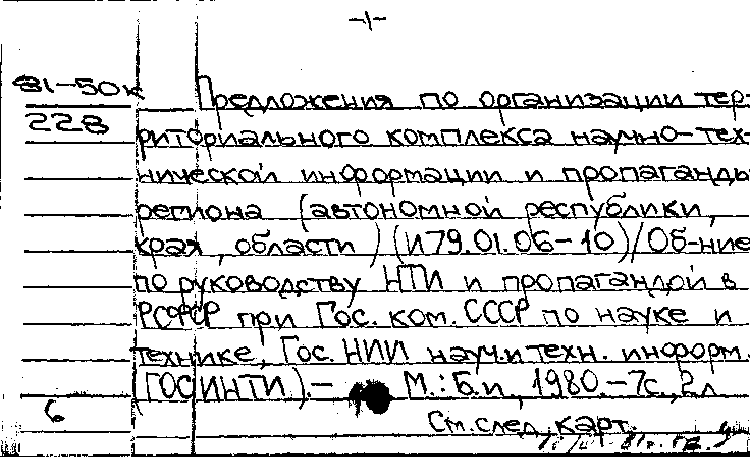 -1-
81-50к Предложения по организации тер-
228 риториального комплекса научно-тех-
нической информации и пропаганды
региона (автономной республики,
края, области) (И79.01.06-10)/Об-ние
по руководству НТИ и пропагандой в
РСФСР при Гос. ком. СССР по науке и
технике, Гос. НИИ науч. и техн. информ.
(ГОСИНТИ).- М.: Б.и, 1980.-7с., 2л
6 См. след. карт.